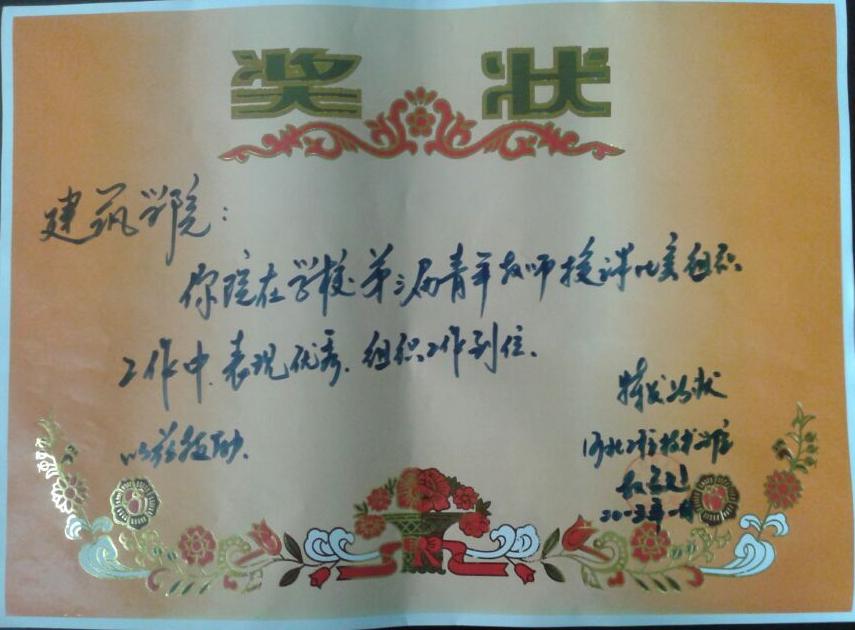 奖状
建筑学院：
你院在学校第三届青年教师授课比赛组织
工作中，表现优秀，组织工作到位，
特发此状
以兹鼓励，
河北工程技术学院
二0一五年一月